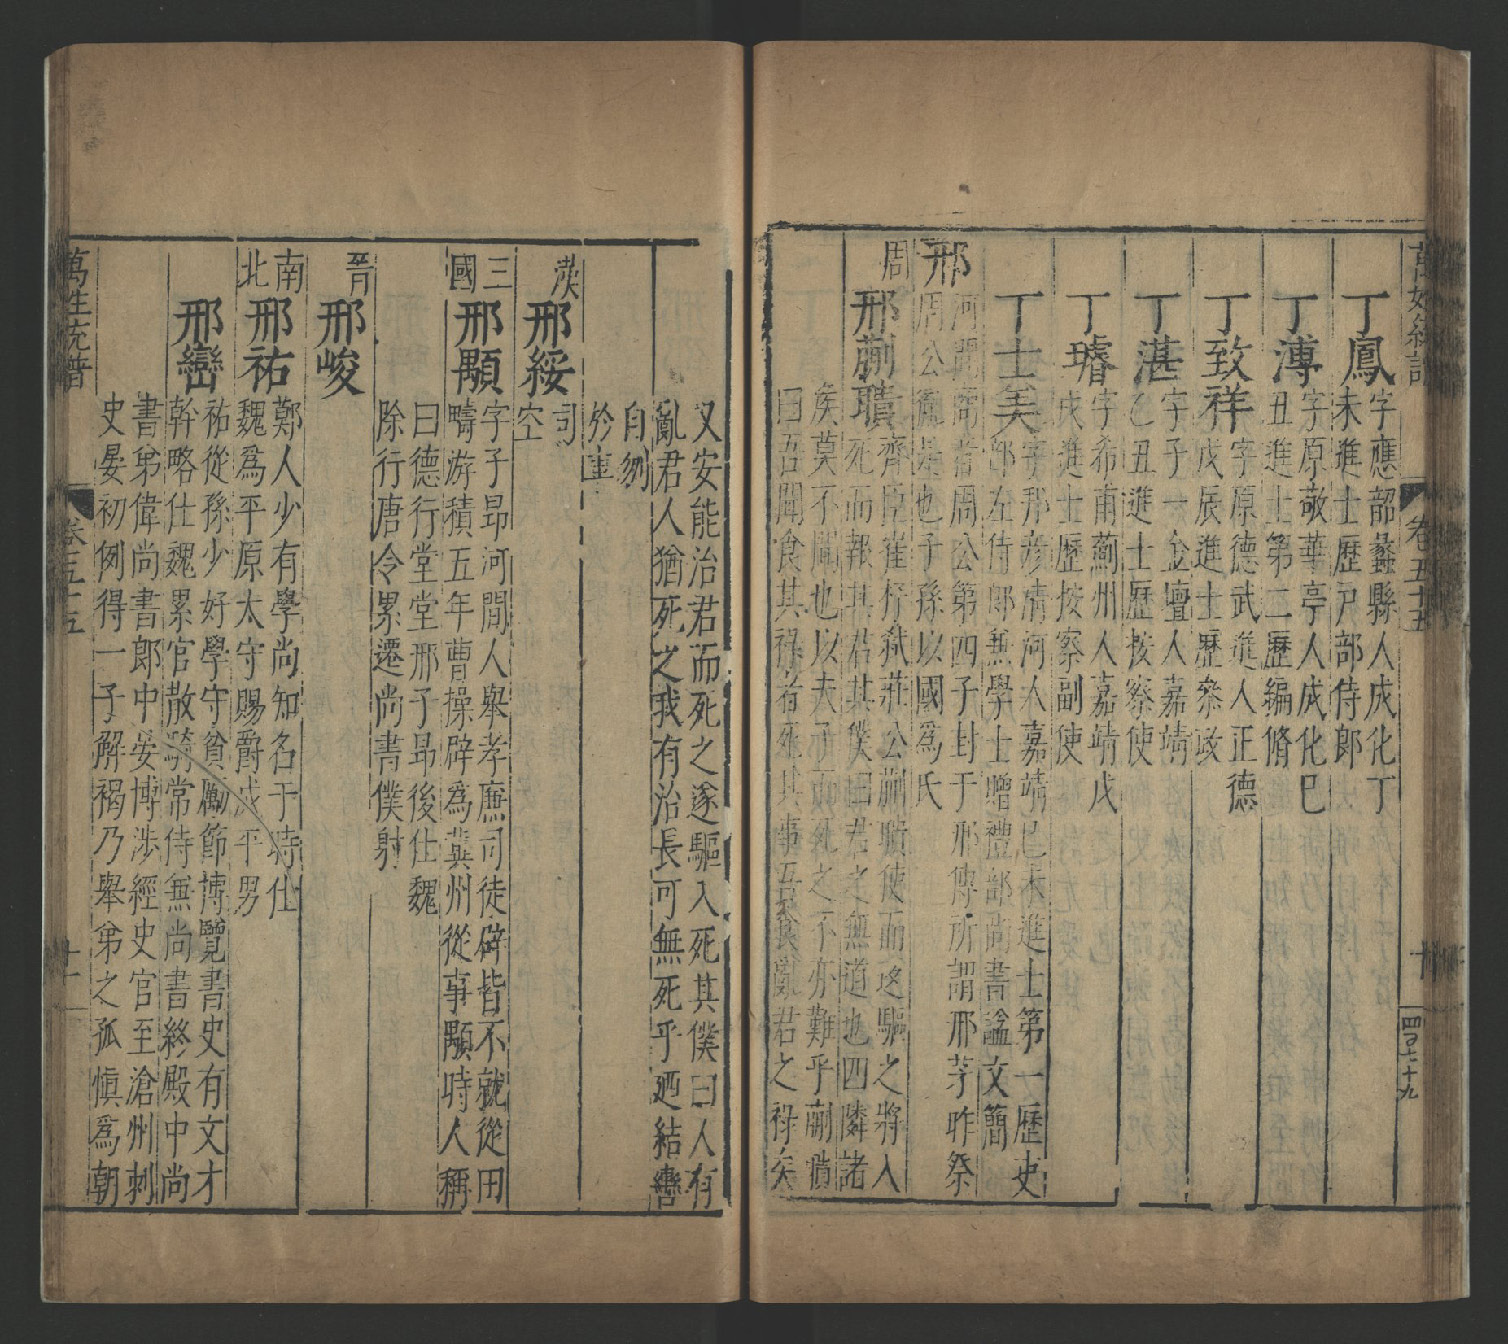 萬姓統譜
卷五十五
十
四百七十九
丁鳳
字應韶蠡縣人成化丁
未進士歷戸部侍郎
丁溥
字原敬華亭人成化己
丑進士第二歷編脩
丁致祥
字原德武進人正德
戊辰進士歷叅政
丁湛
字子一金壇人嘉靖
乙丑進士歷按察使
丁璿
字希甫薊州人嘉靖戊
戌進士歷按察副使
丁士美
字邦彦清河人嘉靖己未進士第一歷吏
部左侍郎無學士贈禮部尚書謚文簡
邢
河間帝者周公第四子封于邢傳所謂邢茅昨祭
周公胤是也子孫以國爲氏
周
邢蒯聵
齊臣崔杼弒莊公蒯聵使而返驅之將入
死而報其君其僕曰君之無道也四隣諸
矦莫不聞也以夫子而死之不亦難乎蒯聵
曰吾聞食其祿者死其事吾食亂君之祿矣
又安能治君而死之遂驅入死其僕曰人有
亂君人猶死之我有治長可無死乎廼結轡
自刎
於車
漢
邢綏
司
空
三國
邢顒
字子昻河間人舉孝廉司徒辟皆不就從田
疇游積五年曹操辟爲冀州從事顒時人稱
曰德行堂堂邢子昻後仕魏
除行唐令累遷尚書僕射
晋
邢峻
南北
邢祐
鄭人少有學尚知名于時仕
魏爲平原太守賜爵成平男
邢巒
祐從孫少好學守貧勵節博覽書史有文才
幹略仕魏累官散騎常侍無尚書終殿中尚
書弟偉尚書郎中晏博涉經史官至滄州刺
史晏初例得一子解褐乃舉弟之孤愼爲朝
萬姓統譜
卷五十五
十一